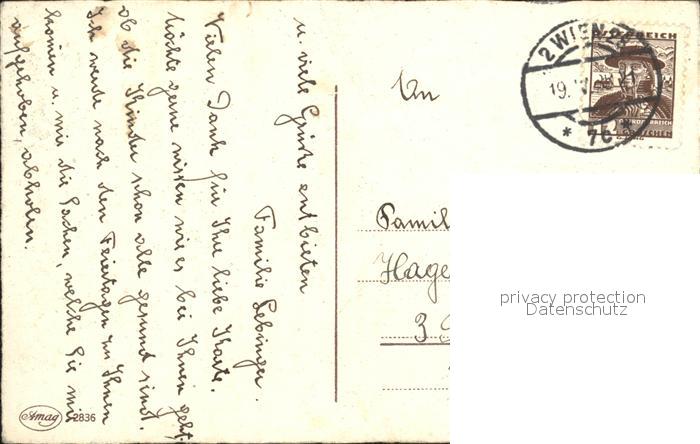 u. viele Grüße entbieten
Familie Lebinger.
Vielen Dank für Ihre liebe Karte.
Möchte gerne wissen wie es bei Ihnen geht,
ob die Kinder schon alle gesund sind.
Ich werde nach den Feiertagen zu Ihnen
kommen u. mir die Sachen, welche Sie mir
aufgehoben, abholen.
Amag 2836
An
Famil
Hage
3
2 WIEN
19.
* 7c *
ÖSTERREICH
GROSCHEN
privacy protection
Datenschutz